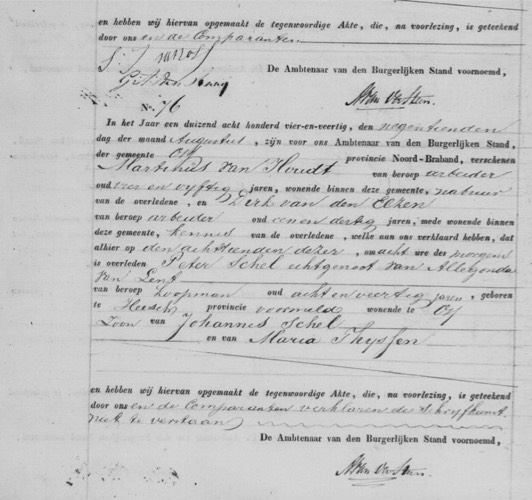 en hebben wij hiervan opgemaakt de tegenwoordige Akte, die, na voorlezing, is geteekend
door ons en de Comparanten
De Ambtenaar van den Burgerlijken Stand voornoemd,
No. 76
In het Jaar een duizend acht honderd vier-en-veertig, den negentienden
dag der maand Augustus, zijn voor ons Ambtenaar van den Burgerlijken Stand,
der gemeente Oss provincie Noord-Braband, verschenen
Martinus van Heudt van beroep arbeider
oud vier en vijftig jaren, wonende binnen deze gemeente, nabuur
van de overledene, en Dirk van den Elzen
van beroep arbeider oud een en dertig jaren, mede wonende binnen
deze gemeente, kennis van de overledene, welke aan ons verklaard hebben, dat
alhier op den achttienden dezer, om acht ure des morgens
is overleden Peter Schel echtgenoot van Allegonda
van Lent
van beroep koopman oud acht en veertig jaren, geboren
te Heesch provincie voormeld wonende te Oss
Zoon van Johannes Schel
en van Maria Thyssen
en hebben wij hiervan opgemaakt de tegenwoordige Akte, die, na voorlezing, is geteekend
door ons en de Comparanten verklaren de Schryfkunst
niet te verstaan
De Ambtenaar van den Burgerlijken Stand voornoemd,